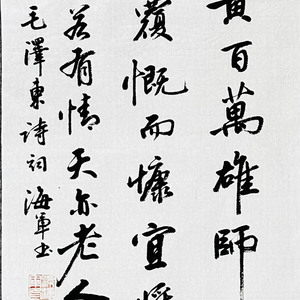 黄百萬雄師
覆慨而慷宜將
若有情天亦老人
毛澤東詩詞海軍书